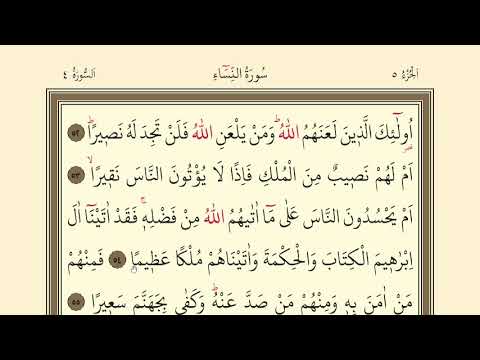 اَلْجُزْءُ ٥ سُورَةُ النِّسَٓاءِ اَلسُّورَةُ ٤
اُو۬لٰٓئِكَ الَّذٖينَ لَعَنَهُمُ اللّٰهُؕ وَمَنْ يَلْعَنِ اللّٰهُ فَلَنْ تَجِدَ لَهُ نَصٖيرًاؕ ٥٢
اَمْ لَهُمْ نَصٖيبٌ مِنَ الْمُلْكِ فَاِذًا لَا يُؤْتُونَ النَّاسَ نَقٖيرًاۙ ٥٣
اَمْ يَحْسُدُونَ النَّاسَ عَلٰى مَٓا اٰتٰيهُمُ اللّٰهُ مِنْ فَضْلِهٖۚ فَقَدْ اٰتَيْنَٓا اٰلَ
اِبْرٰهٖيمَ الْكِتَابَ وَالْحِكْمَةَ وَاٰتَيْنَاهُمْ مُلْكًا عَظٖيمًا ٥٤ فَمِنْهُمْ
مَنْ اٰمَنَ بِهٖ وَمِنْهُمْ مَنْ صَدَّ عَنْهُؕ وَكَفٰى بِجَهَنَّمَ سَعٖيرًا ٥٥